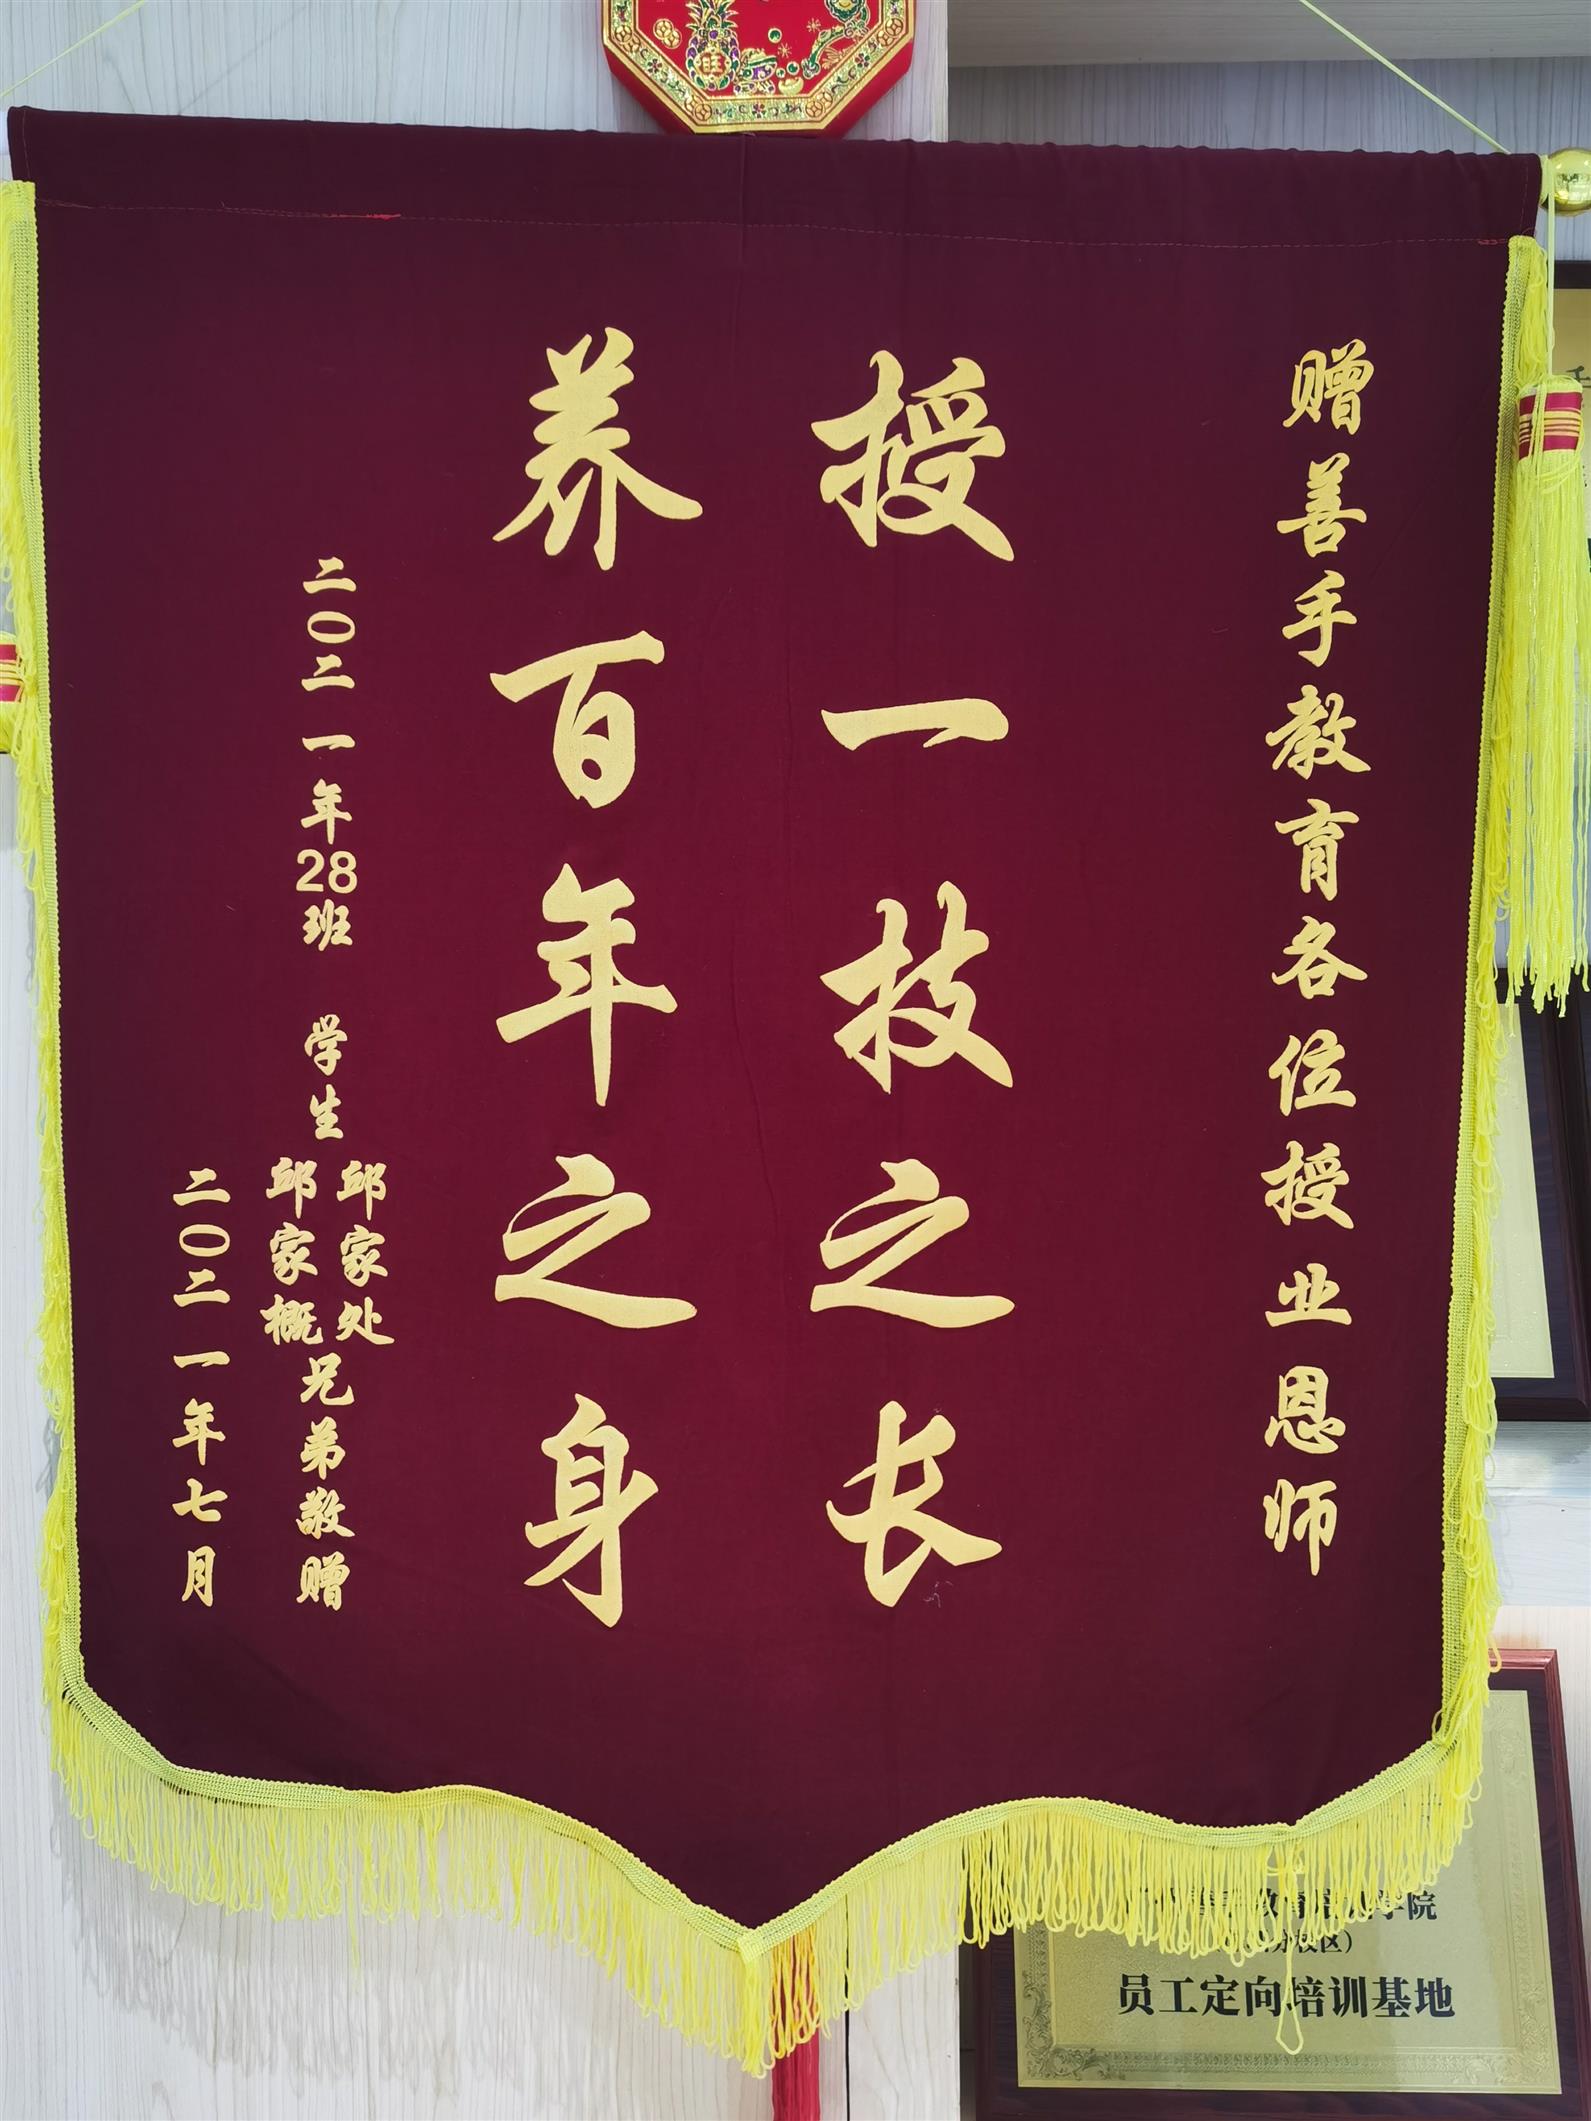 旺
赠善手教育各位授业恩师
授一技之长
养百年之身
二〇二一年28班 学生
邱家处
邱家概
兄弟敬赠
二〇二一年七月
教育
学院
校区）
员工定向培训基地